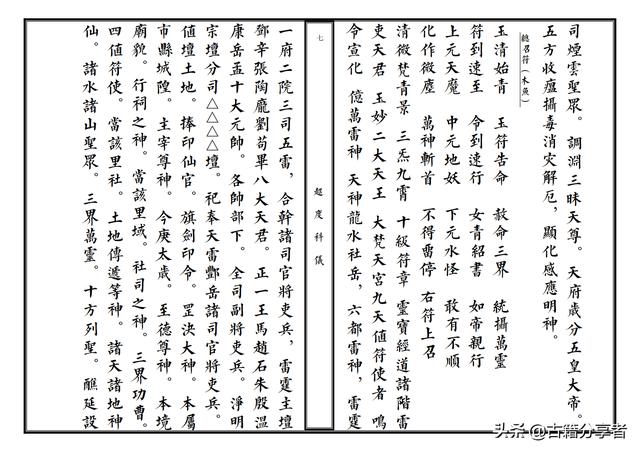 司煙雲聖眾。調淵三昧天尊。天府歲分五皇大帝。
五方收瘟攝毒消灾解厄，顯化感應明神。
總召符（木魚）
玉清始青　玉符告命　敕命三界　統攝萬靈
符到速至　令到速行　女青紹書　如帝親行
上元天魔　中元地妖　下元水怪　敢有不順
化作微塵　萬神斬首　不得留停　右符上召
清微梵青景　三炁九霄　十級符章　靈寶經道諸階雷
吏天君　玉妙二大天王　大梵天宮九天值符使者　鳴
令宣化　億萬雷神　天神龍水社岳，六都雷神，雷霆
七
超度科儀
一府二院三司五雷，合幹諸司官將吏兵，雷霆主壇
鄧辛張陶龐劉苟畢八大天君。正一王馬趙石朱殷溫
康岳孟十大元帥。各帥部下。全司副將吏兵。淨明
宗壇分司△△△△壇。祀奉天雷酆岳諸司官將吏兵。
值壇土地。捧印仙官。旗劍印令。罡決大神。本屬
市縣城隍。主宰尊神。今庚太歲。至德尊神。本境
廟貌。行祠之神。當該里域。社司之神。三界功曹。
四值符使。當該里社。土地傳遞等神。諸天諸地神
仙。諸水諸山聖眾。三界萬靈。十方列聖。醮延設
头条 @古籍分享者